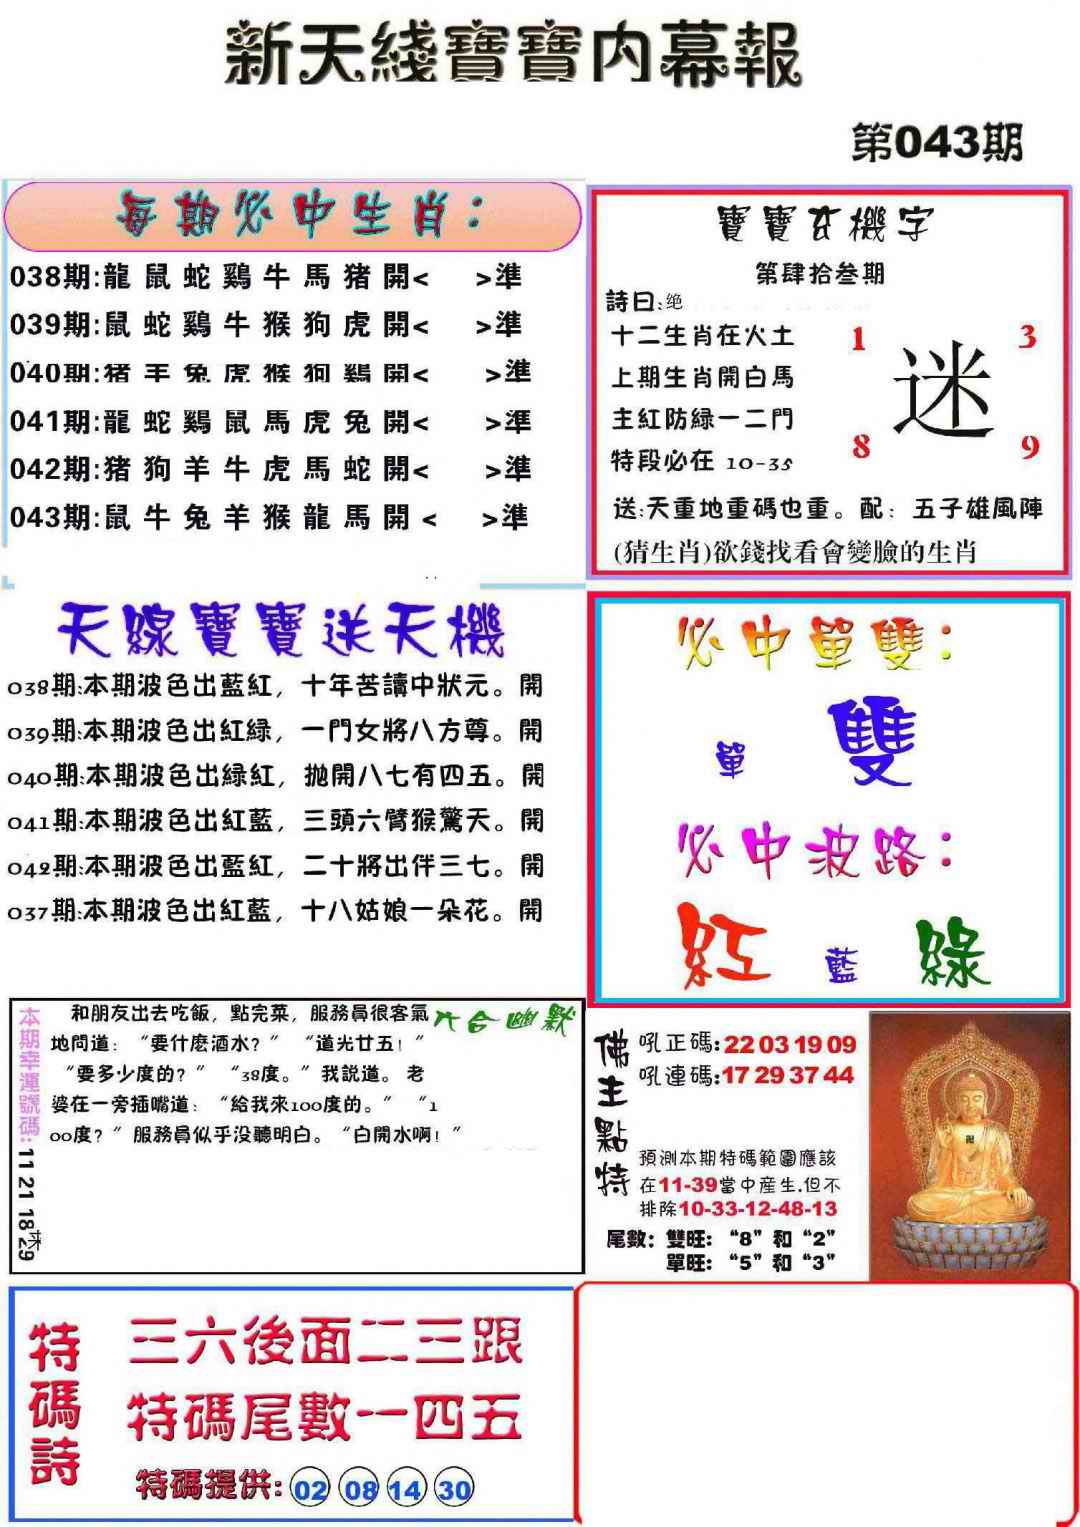 新天綫寶寶内幕報
第043期
每期必中生肖：
038期:龍鼠蛇鷄牛馬猪開< >準
039期:鼠蛇鷄牛猴狗虎開< >準
040期:猪羊兔虎猴狗鷄開< >準
041期:龍蛇鷄鼠馬虎兔開< >準
042期:猪狗羊牛虎馬蛇開< >準
043期:鼠牛兔羊猴龍馬開< >準
寶寶玄機字
第肆拾叁期
詩曰:绝
十二生肖在火土
上期生肖開白馬
主紅防緑一二門
特段必在 10-35
1 3
迷
8 9
送:天重地重碼也重。配：五子雄風陣
(猜生肖)欲錢找看會變臉的生肖
天線寶寶送天機
038期:本期波色出藍紅，十年苦讀中狀元。開
039期:本期波色出紅緑，一門女將八方尊。開
040期:本期波色出緑紅，拋開八七有四五。開
041期:本期波色出紅藍，三頭六臂猴驚天。開
042期:本期波色出藍紅，二十將出伴三七。開
037期:本期波色出紅藍，十八姑娘一朵花。開
必中單雙：
單 雙
必中波路：
紅 藍 綠
本期幸運號碼:11 21 18 29
六合幽默
和朋友出去吃飯，點完菜，服務員很客氣
地問道：“要什麽酒水？”“道光廿五！”
“要多少度的？”“38度。”我説道。老
婆在一旁插嘴道：“給我來100度的。”“1
00度？”服務員似乎没聽明白。“白開水啊！”
佛主點特
吼正碼:22 03 19 09
吼連碼:17 29 37 44
預測本期特碼範圍應該
在11-39當中産生.但不
排除10-33-12-48-13
尾數：雙旺：“8”和“2”
單旺：“5”和“3”
特碼詩
三六後面二三跟
特碼尾數一四五
特碼提供: 02 08 14 30